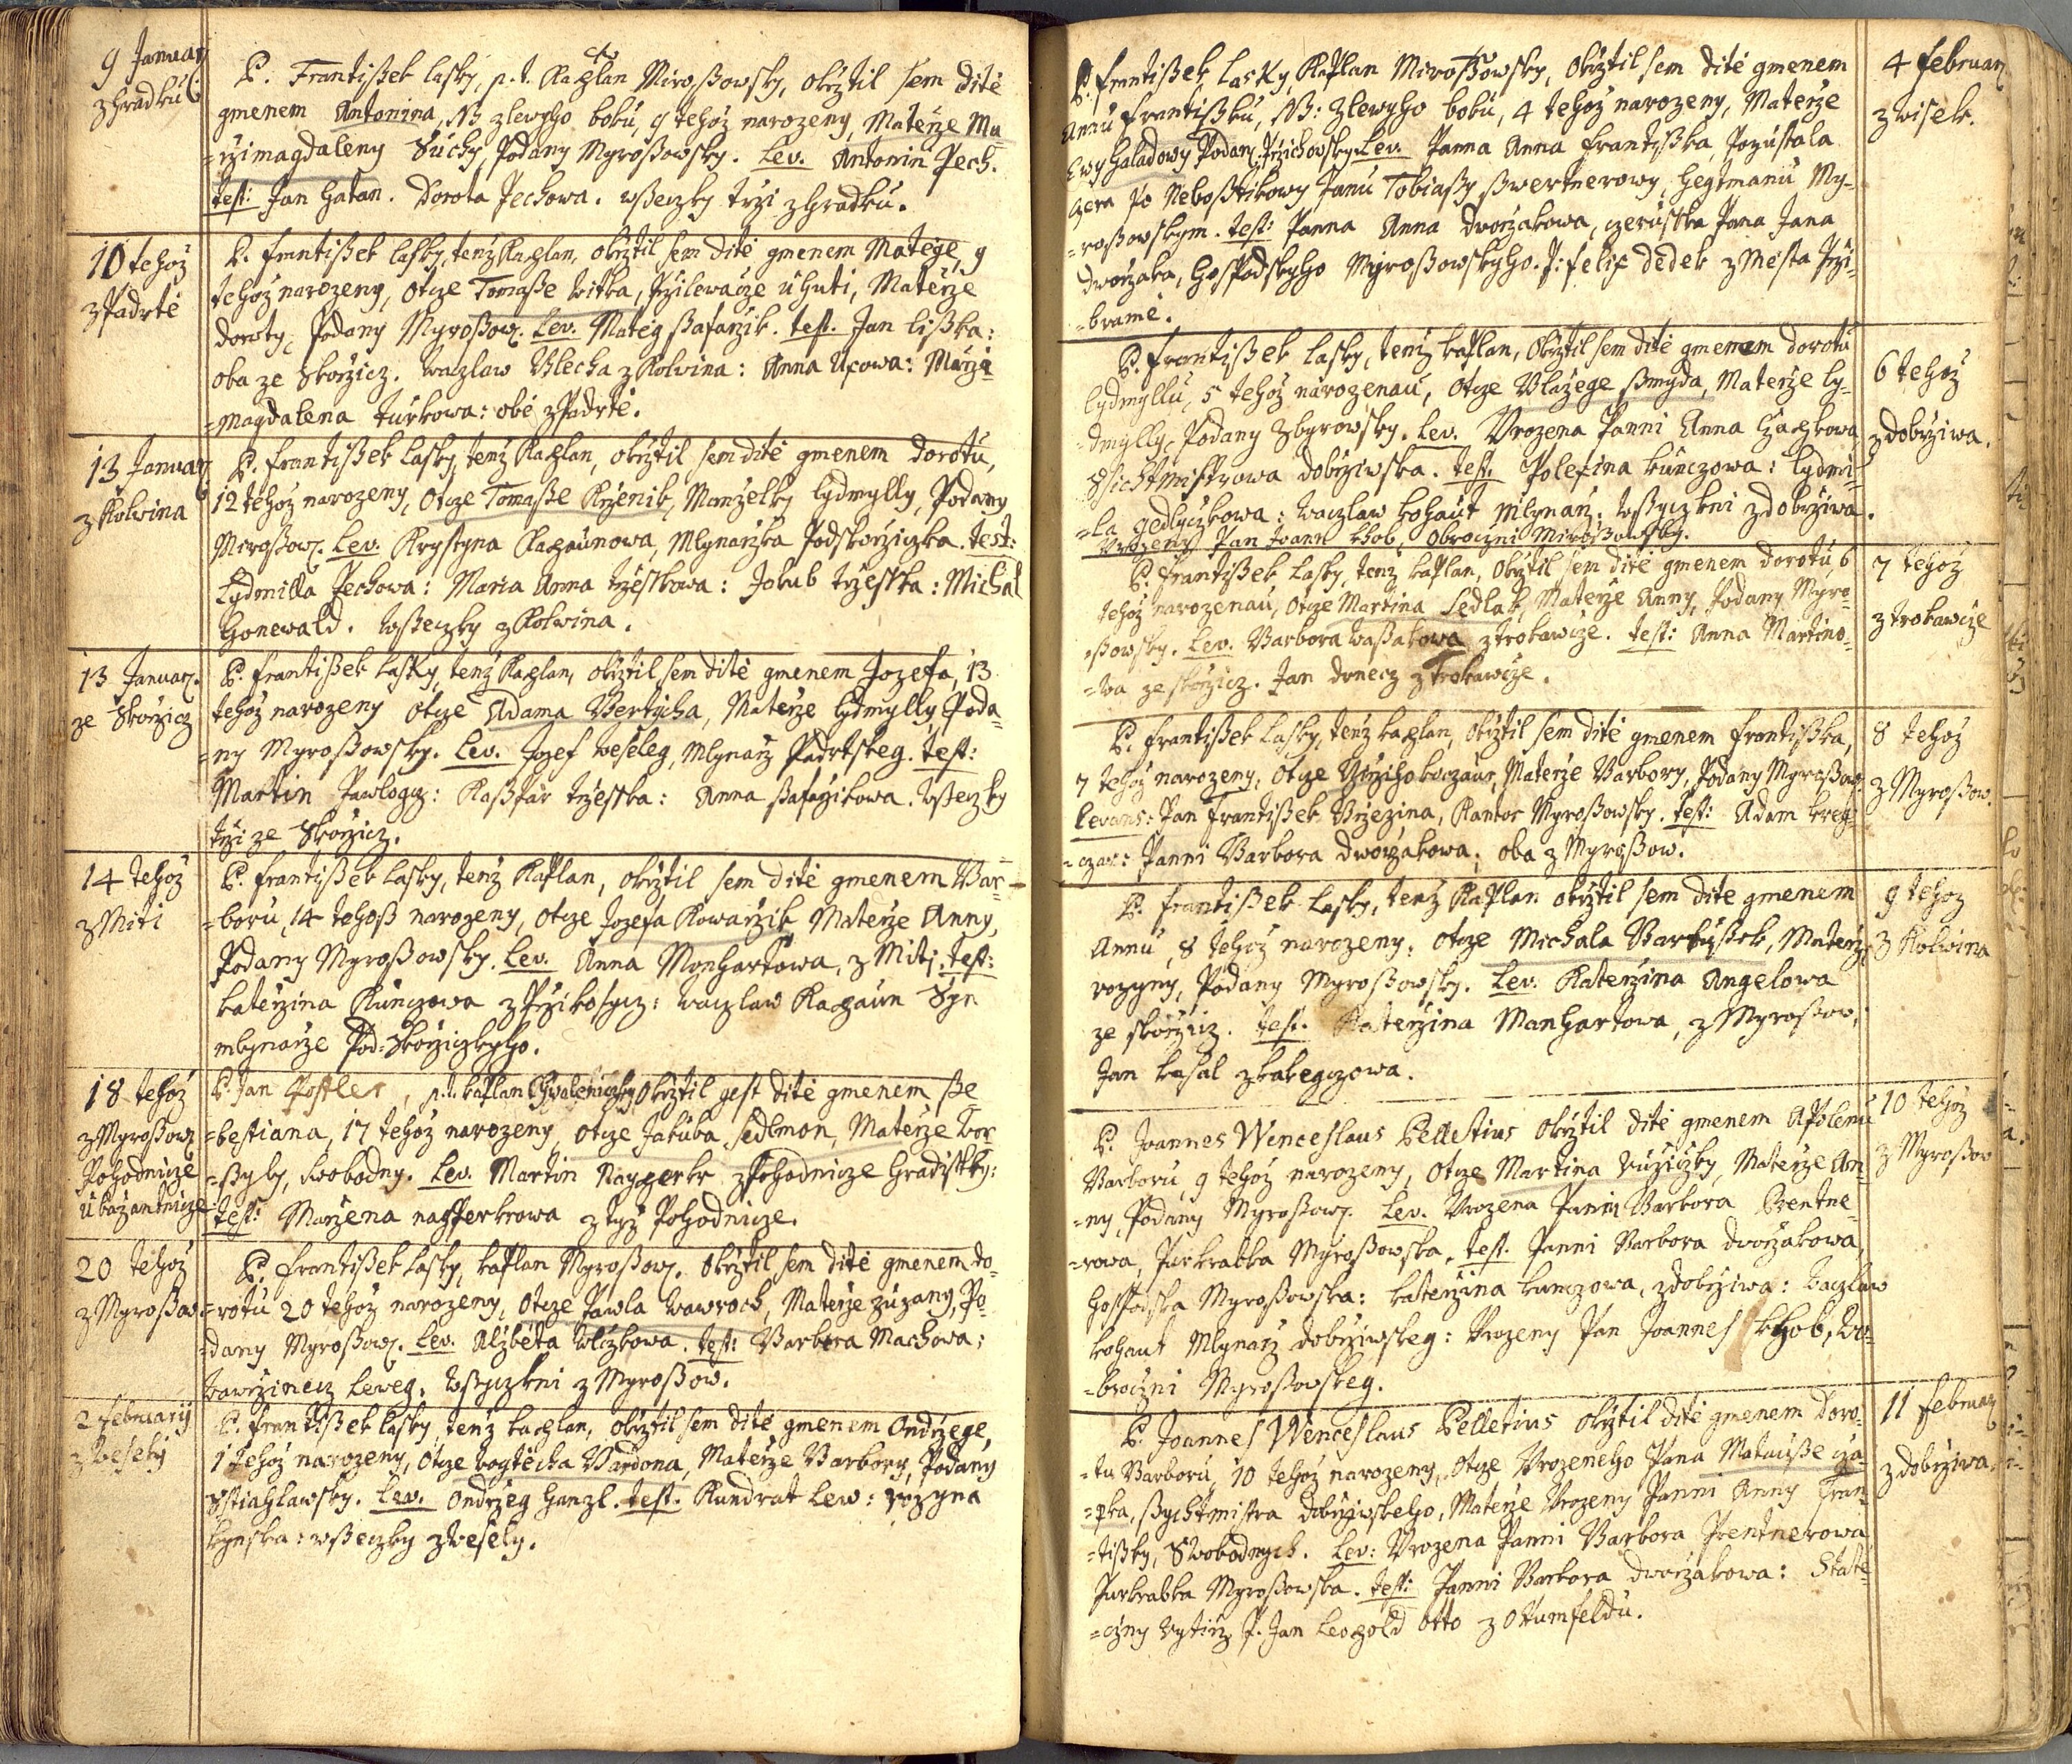 9 Januar
z Hradku
P. Frantißek Lasky, p. t. Kaplan Mirossowsky, okrztil sem dité
gmenem Antonina, NB zlewyho boku, 9 tehoz narozeny, Materze Ma
=rzimagdaleny Suchy, Podany Myroßowsky. Lev. Antonin Pech.
test: Jan Hatan. Dorota Pechowa. wßeczky trzi z Hradku.
10 tehoz
z Padrté
P. Frantißek Lasky, tenz Kaplan, okrztil sem dité gmenem Matege, 9
tehoz narozeny, Otcze Tomaße Witka, Przilewacze u Huti, Materze
Doroty, Podany Myroßow. Lev. Mateg ßafarzik. test. Jan Lißka:
oba ze Skorzicz. Wazlaw Blecha z Kolvina: Anna Upowa: Marze
=magdalena Turkowa: obé z Padrté.
13 Januar
z Kolwina
P. Frantißek Lasky, tenz Kaplan, okrztil sem dité gmenem Dorotu,
12 tehoz narozeny, Otcze Tomaße Krzenik, Manzelky Lydmylly, Podany
Miroßow. Lev. Krystyna Kapaunowa, Mlynarzka Podskorziczka. test:
Lydmilla Pechowa: Maria Anna Trzeskowa: Jakub Trzeska: Michal
Honewald. Wßeczky z Kolwina.
13 Januar.
ze Skorzicz
P. Frantißek Lasky, tenz Kaplan, okrztil sem dité gmenem Jozefa, 13
tehoz narozeny Otcze Adama Bertycha, Materze Lydmylly, Poda=
=ny Myroßowsky. Lev. Jozef Weseleg, Mlynarz Padrtskeg. test:
Martin Pawlogcz: Kaßpar Trzeska: Anna ßafarzikowa. Wßeczky
trzi ze Skorzicz.
14 tehoz
z Miti
P. Frantißek Lasky, tenz Kaplan, okrztil sem dité gmenem Bar=
=boru, 14 tehoß narozeny, Otcze Jozefa Kowarzik, Materze Anny,
Podany Myroßowsky. Lev. Anna Monhartowa, z Miti. test:
Katerzina Kunczowa z Przikosycz: Waczlaw Kapaun Syn
mlynarze Pod=Skorziczkyho.
18 tehoz
z Myroßow
Pohodnicze
u bazantnicze
P. Jan Postler, p. t. Kaplan Chwalenicky okrztil gest dité gmenem ße
=bestiana, 17 tehoz narozeny, Otcze Jakuba Sedlmon, Materze Bor
=ßyky, swobodny. Lev. Martin Nayperkr z Pohodnicze Hradistky:
test: Marzena nayperkrowa z tyz Pohodnicze.
20 tehoz
z Myroßow
P. Frantißek Lasky, Kaplan Myroßow. okrztil sem dité gmenem Do=
=rotu 20 tehoz narozeny, Otcze Pawla Wawroch, Materze Zuzany, Po=
=dany Myroßow. Lev. Alzbéta Wlczkowa. test: Barbora Machowa:
Wawrzinecz Leweg. Wßyczkni z Myroßow.
2 Februarij
z Wesely
P. Frantißek Lasky, tenz Kaplan, okrztil sem dité gmenem Ondrzege,
1 tehoz narozeny, Otcze Wogtécha Bardona, Materze Barbory, Podany
Sstiahlawsky. Lev. Ondrzeg Hanzl. test. Kundrat Lew: Rozyna
Kynska: wßeczky z Wesely.
4 Februar
z Wisek.
P. Frantißek Lasky, Kaplan Miroßowsky, okrztil sem dité gmenem
Annu Frantißku, NB: zlewyho boku, 4 tehoz narozeny, Materze
Ewy Haladowy Podany Przichowsky Lev. Panna Anna Frantißka, Pozustala
czera po Neboßtikowy Panu Tobiaßy ßwertnerowy, Hegtmanu My=
=roßowskym. test: Panna Anna Dworzakowa, czeruska Pana Jana
Dworzaka, Hospodskyho Myroßowskyho. P: Felip Dedek z Mésta Przi=
=bramé.
6 tehoz
z Dobrziwa.
P. Frantißek Lasky, tenz Kaplan, okrztil sem dité gmenem Dorotu
Lydmyllu, 5 tehoz narozenau, Otcze Blazege ßmyda, Materze Ly=
=dmylly, Podany Zbyrowsky. Lev. Urozena Panni Anna Czapkowa
Ssichtmistrowa Dobrziwska. test. Polexina Kunczowa: Lydmi=
=la Gedlyczkowa: Waczlaw Kohaut Mlynarz. Wßyczkni z Dobrziwa.
Urozeny Pan Joann Khob, Obroczni Miroßowsky.
7 tehoz
z Trokawcze
P. Frantißek Lasky, tenz Kaplan, okrztil sem dité gmenem Dorotu, 6
tehoz narozenau, Otcze Martina Sedlak, Materze Anny, Podany Myro=
=ßowsky. Lev. Barbora Waßakowa z Trokawcze. test: Anna Martino=
=wa ze Skorzicz. Jan Dunecz z Trokawcze.
8 tehoz
z Myroßow.
P. Frantißek Lasky, tenz Kaplan, okrztil sem dité gmenem Frantißka,
7 tehoz narozeny, Otcze Girziho Koczaur, Materze Barbory, Podany Myroßow.
Levans: Pan Frantißek Brzezina, Kantor Myroßowsky. test: Adam Kreg=
=czar: Panni Barbora Dworzakowa; oba z Myroßow.
9 tehoz
z Kolwina
P. Frantißek Lasky, tenz Kaplan okrztil sem dite gmenem
Annu, 8 tehoz narozeny, Otcze Michala Bartußek, Materze
Rozyny, Podany Myroßowsky. Lev. Katerzina Angelowa
ze Skorzicz. test. Katerzina Manhartowa, z Myroßow,
Jan Kasal z Kakegczowa.
10 tehoz
z Myroßow
P. Joannes Wenceslaus Pelletius okrztil dité gmenem Apolenu
Barboru, 9 tehoz narozeny, Otcze Martina Ruziczky, Materze An=
=ny, Podany Myroßow. Lev. Urozena Panni Barbora Prentne=
=rowa, Purkrabka Myroßowska. test. Panni Barbora Dworzakowa,
Hospodska Myroßowska: Katerzina Kunczowa, z Dobrziwa: Waczlaw
Kohaut Mlynarz Dobrziwskeg: Urozeny Pan Joannes Khob, Wo=
=broczni Myroßowskeg.
11 Februar
z Dobrziwa.
P. Joannes Wenceslaus Pelletius okrztil dité gmenem Doro=
=tu Barboru, 10 tehoz narozeny, Otcze Urozeneho Pana Matauße Cza=
=pka, ßychtmistra Dobrziwskeho, Materze Urozeny Panni Anny Fran=
=tißky, Swobodnych. Lev: Urozena Panni Barbora Prentnerowa
Purkrabka Myroßowska. test: Panni Barbora Dworzakowa: State=
=czny Rytirz P. Jan Leopold Otto z Ottumfeldu.